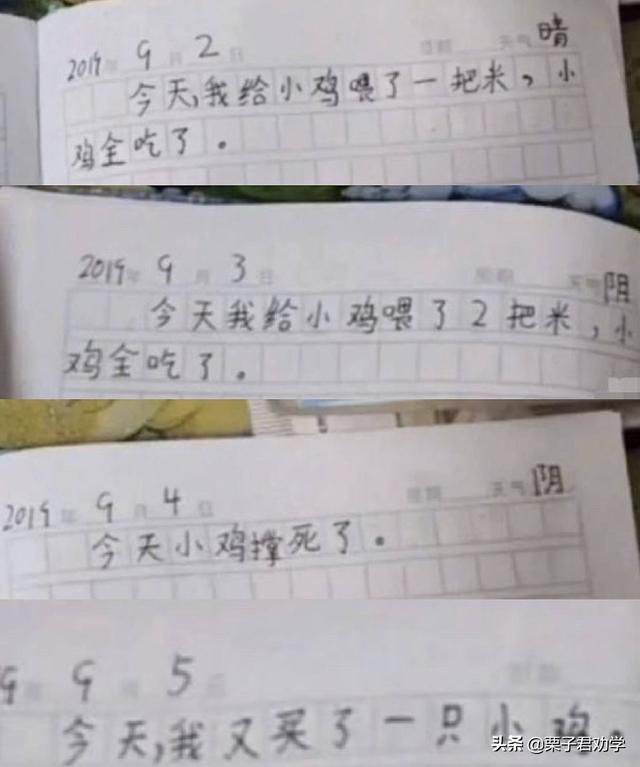 2019年 9月 2日 星期 天气 晴
今天,我给小鸡喂了一把米，小
鸡全吃了。
2019年 9月 3日 星期 天气 阴
今天我给小鸡喂了2把米，小
鸡全吃了。
2019年 9月 4日 星期 天气 阴
今天小鸡撑死了。
9年 9月 5日
今天,我又买了一只小鸡。
头条 @栗子君劝学